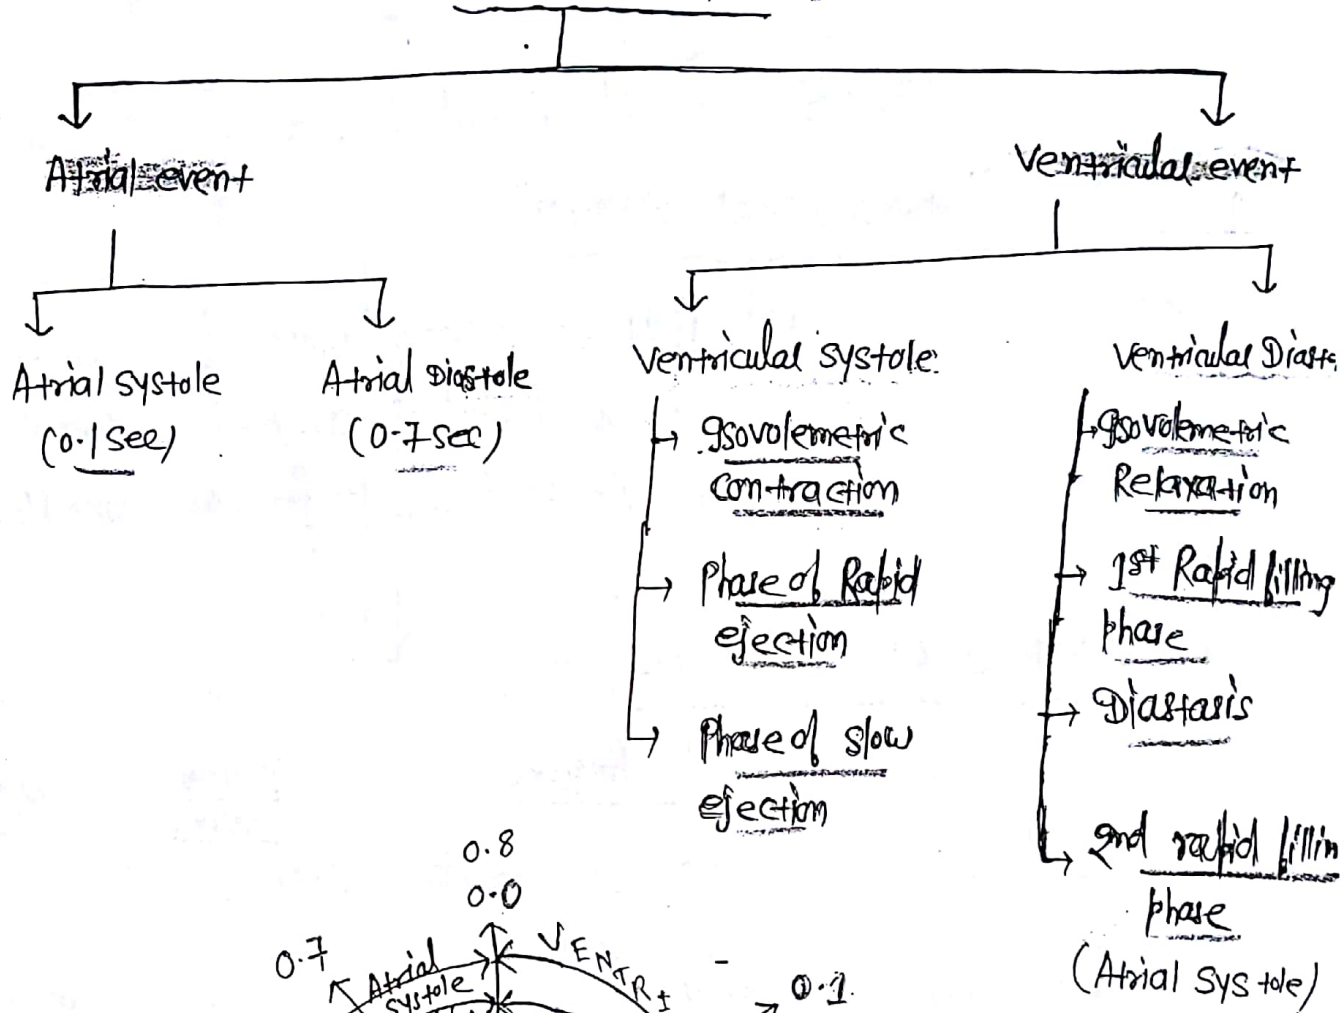 Atrial event
Ventricular event
Atrial systole
(0.1 sec)
Atrial Diastole
(0.7 sec)
Ventricular systole:
Isovolemetric
contraction
Phase of Rapid
ejection
Phase of slow
ejection
Ventricular Diast
Isovolemetric
Relaxation
1st Rapid filling
phase
Diastasis
2nd rapid fillin
phase
(Atrial Systole)
0.8
0.0
0.7
Atrial
systole
VENTRI
0.1